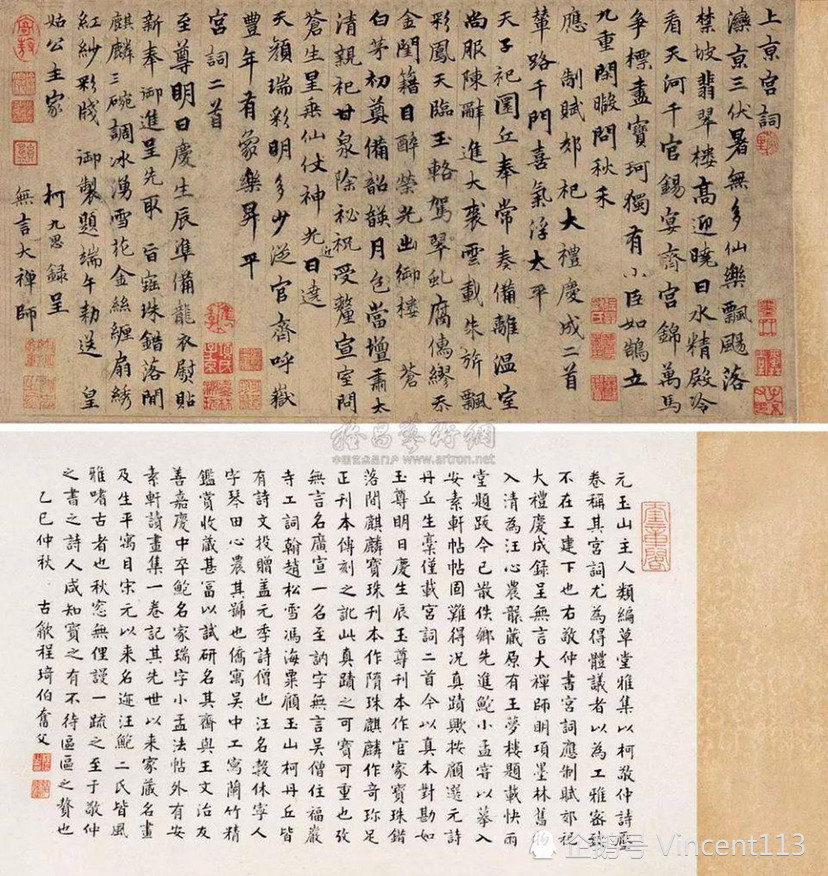 上京宮詞
灤京三伏暑無多仙樂飄颻落
禁坡翡翠樓高迎曉日水精殿冷
看天河千官錫宴齋宮錦萬馬
爭標盡寶珂獨有小臣如鵠立
九重閑暇問秋禾
應制賦郊祀大禮慶成二首
輦路千門喜氣浮太平
天子祀圜丘奉常奏備離溫室
尚服陳辭進大裘雲載朱旂飄
彩鳳天臨玉輅駕翠虬腐儒繆忝
金閨籍目醉榮光出御樓 蒼
白茅初奠備韶韺月色當壇肅太
清親祀甘泉除祕祝受釐宣室問
蒼生呈乘仙仗神光近日遶
天顏瑞彩明多少從官齋呼嶽
豐年有象樂昇平
宮詞二首
至尊明日慶生辰準備龍衣熨貼
新奉御進呈先取旨寶珠錯落間
麒麟三碗調冰湧雪花金絲纏扇綉
紅紗彩牋御製題端午勑送皇
姑公主家
柯九思錄呈
無言大禪師
元玉山主人類編草堂雅集以柯敬仲詩壓
卷稱其宮詞尤為得體議者以為工雅密致
不在王建下也右敬仲書宮詞應制賦郊祀
大禮慶成錄呈無言大禪師明項墨林舊物
入清為汪心農所藏原有王夢樓題載快雨
堂題跋今已散佚鄉先進鮑小孟嘗以摹入
安素軒帖帖固難得況真蹟歟按顧選元詩
丹丘生稾僅載宮詞二首今以真本對勘如
至尊明日慶生辰至尊刊本作官家寶珠錯
落間麒麟寶珠刊本作隋珠麒麟作奇珍足
正刊本傳刻之訛此真蹟之可寶可重也攷
無言名廣宣一名至訥字無言吳僧住福嚴
寺工詞翰趙松雪馮海粟顧玉山柯丹丘皆
有詩文投贈蓋元季詩僧也汪名穀休寧人
字琴田心農其號也僑寓吳中工寫蘭竹精
鑑賞收藏甚富以試硯名其齋與王文治友
善嘉慶中卒鮑名家瑞字小孟法帖外有安
素軒讀畫集一卷記其先世以來家藏名畫
及生平寓目宋元以來名迹汪鮑二氏皆風
雅嗜古者也秋窓無俚謾一疏之至于敬仲
之書之詩人咸知寶之有不待區區之贅也
乙巳仲秋 古歙程琦伯奮父
雅昌藝術網
中国艺术品门户 www.artron.net
企鹅号 Vincent113